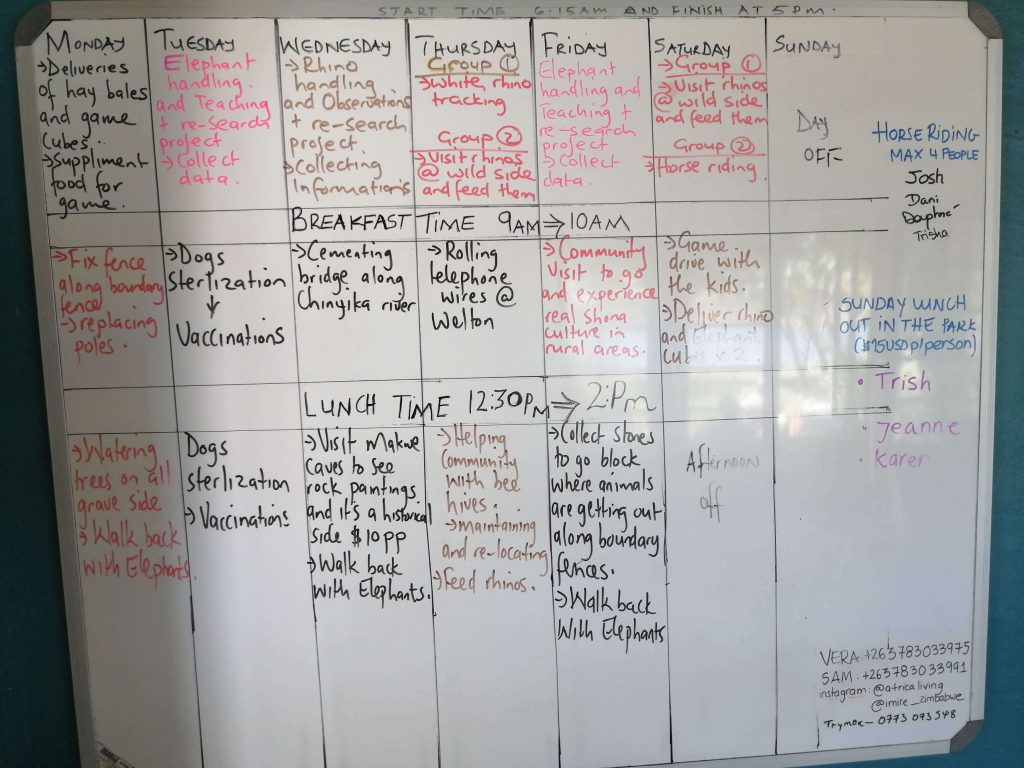 START TIME 6.15AM AND FINISH AT 5PM.
MONDAY
→Deliveries
of hay bales
and game
cubes..
→Suppliment
food for
game.
TUESDAY
Elephant
handling.
and Teaching
+ re-search
project
→ Collect
data.
WEDNESDAY
→Rhino
handling
and Observations
+ re-search
project.
→Collecting
Information's
THURSDAY
Group ①
→White rhino
tracking
Group ②
→Visit rhinos
@ wild side
and feed them
FRIDAY
Elephant
handling and
Teaching +
re-search
project
→ Collect
data.
SATURDAY
→Group ①
→Visit rhinos
@ wild side
and feed them
Group ②
→Horse riding.
SUNDAY
DAY
OFF
HORSE RIDING
MAX 4 PEOPLE
Josh
Dani
Daphne
Trisha
BREAKFAST TIME 9AM→10AM
→Fix fence
along boundary
fence
→replacing
poles.
→Dogs
Sterlization
↓
Vaccinations
→Cementing
bridge along
Chinyika river
→Rolling
telephone
wires @
Welton
→Community
Visit to go
and experience
real Shona
culture in
rural areas.
→Game
drive with
the kids.
→Deliver rhino
and Elephant
cubes x 2.
SUNDAY LUNCH
OUT IN THE PARK
($15USDp/person)
• Trish
• Jeanne
• Karen
LUNCH TIME 12:30PM⇒2:Pm
→Watering
trees on all
grave side
→ Walk back
with Elephants.
Dogs
sterlization
→Vaccinations
→Visit Makwe
caves to see
rock paintings
and it's a historical
side $10pp
→Walk back
with Elephants.
→Helping
Community
with bee
hives.
→maintaining
and re-locating
→Feed rhinos.
→Collect stones
to go block
where animals
are getting out
along boundary
fences.
→Walk back
With Elephants
Afternoon
off
VERA:+263783033975
SAM:+263783033991
instagram: @africaliving
@imire_zimbabwe
Trymore- 0773 073 548